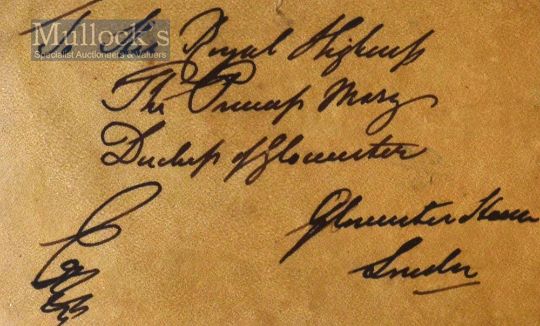 Mullock's
Specialist Auctioneers & Valuers
To Her Royal Highness
The Princess Mary
Duchess of Gloucester
Gloucester House
London